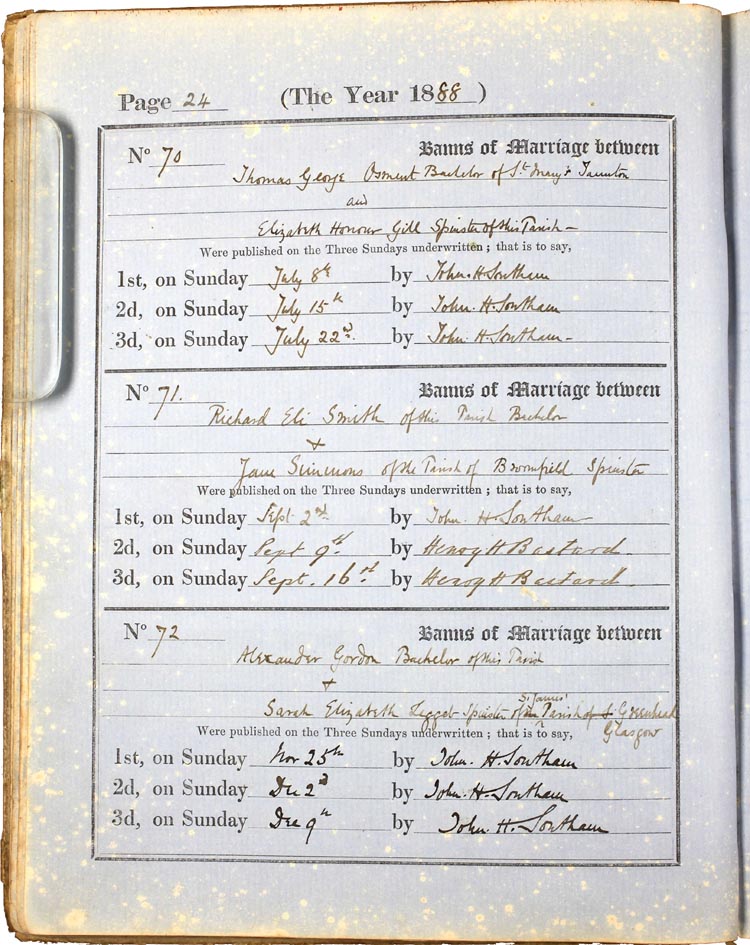 Page 24 (The Year 1888)
No 70 Banns of Marriage between
Thomas George Osment Bachelor of St Mary's Taunton
and
Elizabeth Honour Gill Spinster of this Parish -
Were published on the Three Sundays underwritten; that is to say,
1st, on Sunday July 8th by John. H. Southam
2d, on Sunday July 15th by John. H. Southam
3d, on Sunday July 22nd. by John H. Southam -
No 71. Banns of Marriage between
Richard Eli Smith of this Parish Bachelor
+
Jane Simmons of the Parish of Broomfield Spinster
Were published on the Three Sundays underwritten; that is to say,
1st, on Sunday Sept 2nd. by John. H. Southam
2d, on Sunday Sept 9th. by Henry H Bastard.
3d, on Sunday Sept. 16th by Henry H Bastard.
No 72 Banns of Marriage between
Alexander Gordon Bachelor of this Parish
+
St James'
Sarah Elizabeth Legget Spinster of Parish of Greenhead
Glasgow
Were published on the Three Sundays underwritten; that is to say,
1st, on Sunday Nov 25th by John. H. Southam
2d, on Sunday Dec 2d by John. H. Southam
3d, on Sunday Dec 9th by John. H. Southam